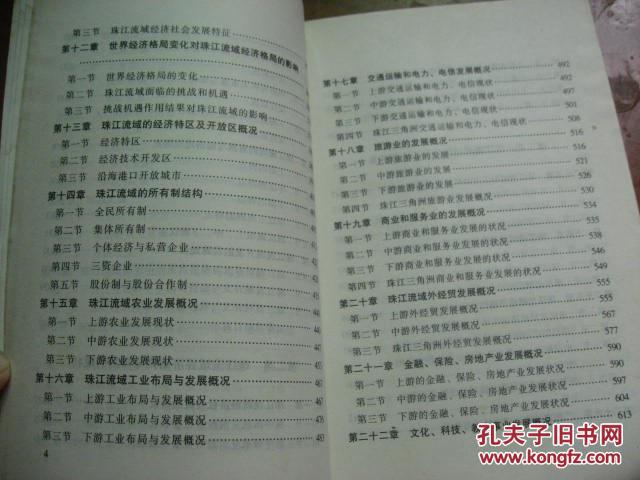 第三节 珠江流域经济社会发展特征
第十二章 世界经济格局变化对珠江流域经济格局的影响
第一节 世界经济格局的变化
第二节 珠江流域面临的挑战和机遇
第三节 挑战机遇作用结果对珠江流域的影响
第十三章 珠江流域的经济特区及开放区概况
第一节 经济特区
第二节 经济技术开发区
第三节 沿海港口开放城市
第十四章 珠江流域的所有制结构
第一节 全民所有制
第二节 集体所有制
第三节 个体经济与私营企业
第四节 三资企业
第五节 股份制与股份合作制
第十五章 珠江流域农业发展概况
第一节 上游农业发展现状
第二节 中游农业发展现状
第三节 下游农业发展现状
第十六章 珠江流域工业布局与发展概况
第一节 上游工业布局与发展概况
第二节 中游工业布局与发展概况
第三节 下游工业布局与发展概况
4
第十七章 交通运输和电力、电信发展概况 492
第一节 上游交通运输和电力、电信现状 492
第二节 中游交通运输和电力、电信现状 497
第三节 下游交通运输和电力、电信现状 501
第四节 珠江三角洲交通运输和电力、电信现状 508
第十八章 旅游业的发展概况 516
第一节 上游旅游业的发展 516
第二节 中游旅游业的发展 521
第三节 下游旅游业的发展 526
第四节 珠江三角洲旅游业的发展 530
第十九章 商业和服务业的发展概况 534
第一节 上游商业和服务业发展的状况 535
第二节 中游商业和服务业发展的状况 538
第三节 下游商业和服务业发展的状况 546
第四节 珠江三角洲商业和服务业发展的状况 549
第二十章 珠江流域外经贸发展概况 555
第一节 上游外经贸发展概况 555
第二节 中游外经贸发展概况 563
第三节 珠江三角洲外经贸发展概况 577
第二十一章 金融、保险、房地产业发展概况 590
第一节 上游的金融、保险、房地产业发展状况 590
第二节 中游的金融、保险、房地产业发展状况 597
第三节 下游的金融、保险、房地产业发展状况 604
第二十二章 文化、科技、教 事业发展概况 613
孔夫子旧书网
www.kongfz.com